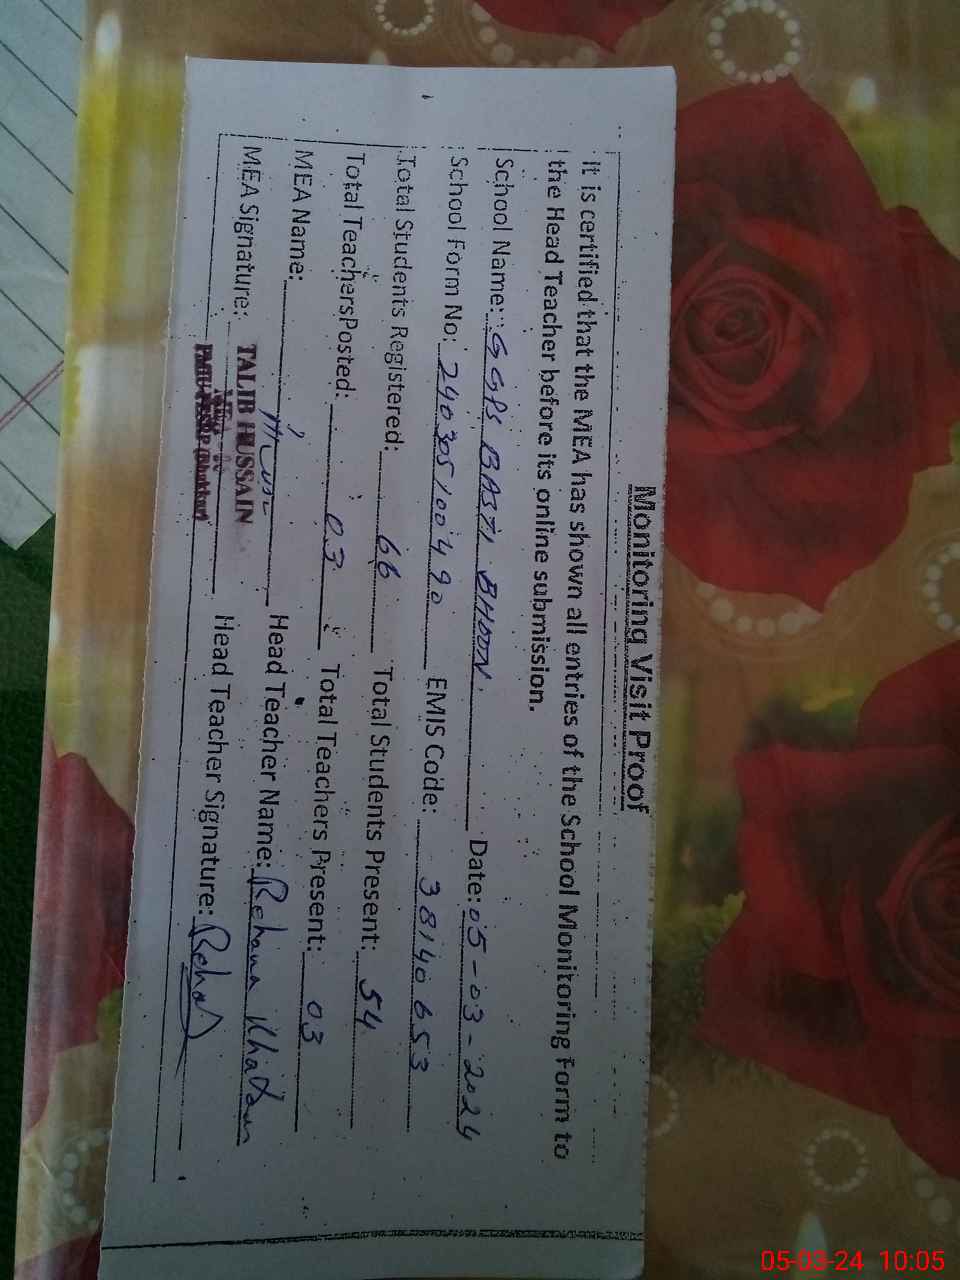 Monitoring Visit Proof
It is certified that the MEA has shown all entries of the School Monitoring Form to
the Head Teacher before its online submission.
School Name: GGPS BASTI BHOON. Date: 05-03-2024
School Form No: 240305100490 EMIS Code: 38140653
Total Students Registered: 66 Total Students Present: 54
Total TeachersPosted: 03 Total Teachers Present: 03
MEA Name: Head Teacher Name: Rehana Khatoon
MEA Signature: TALIB HUSSAIN Head Teacher Signature:
(Bhakkar)
05-03-24 10:05